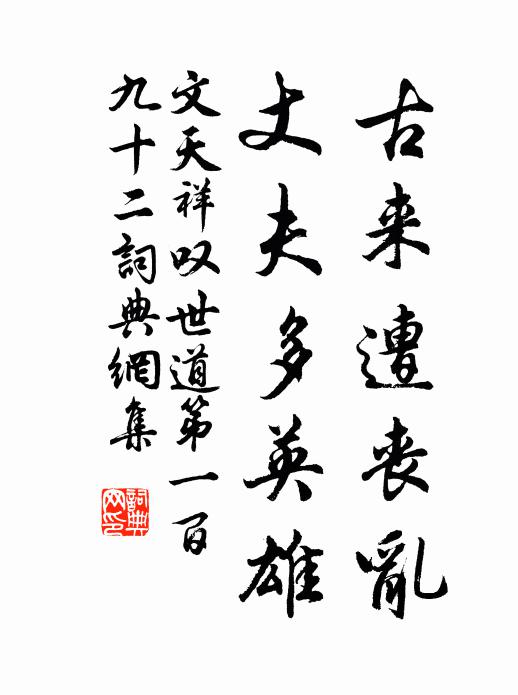 古来遭丧亂
丈夫多英雄
文天祥叹世道第一百
九十二詞典網集
詞典
网印